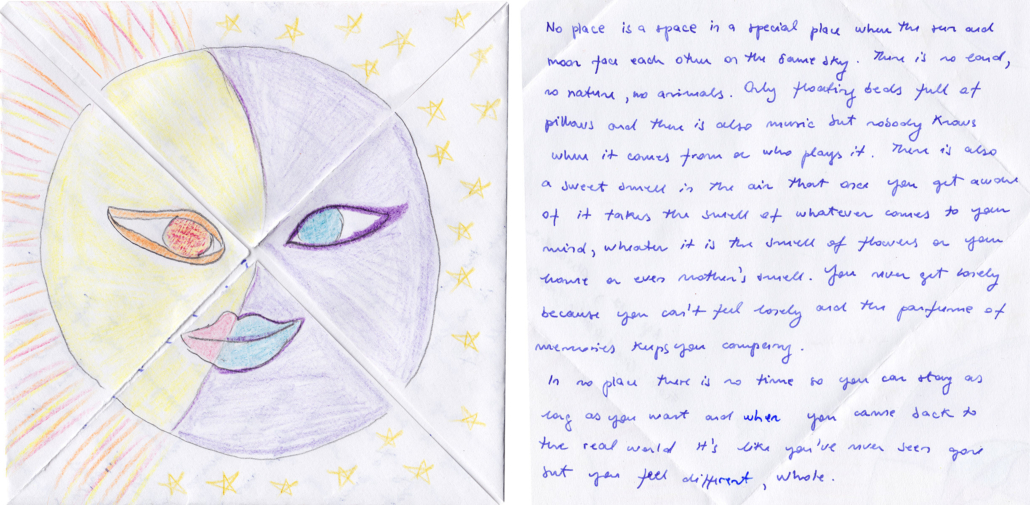 No place is a space in a special place when the sun and
moon face each other on the same sky. There is no land,
no nature, no animals. Only floating beds full of
pillows and there is also music but nobody knows
when it comes from or who plays it. There is also
a sweet smell in the air that once you get aware
of it takes the smell of whatever comes to your
mind, wheater it is the smell of flowers or your
home or even mother's smell. You never get lonely
because you can't feel lonely and the parfume of
memories keeps you company.
In no place there is no time so you can stay as
long as you want and when you came back to
the real world it's like you've never been gone
but you feel different, whole.